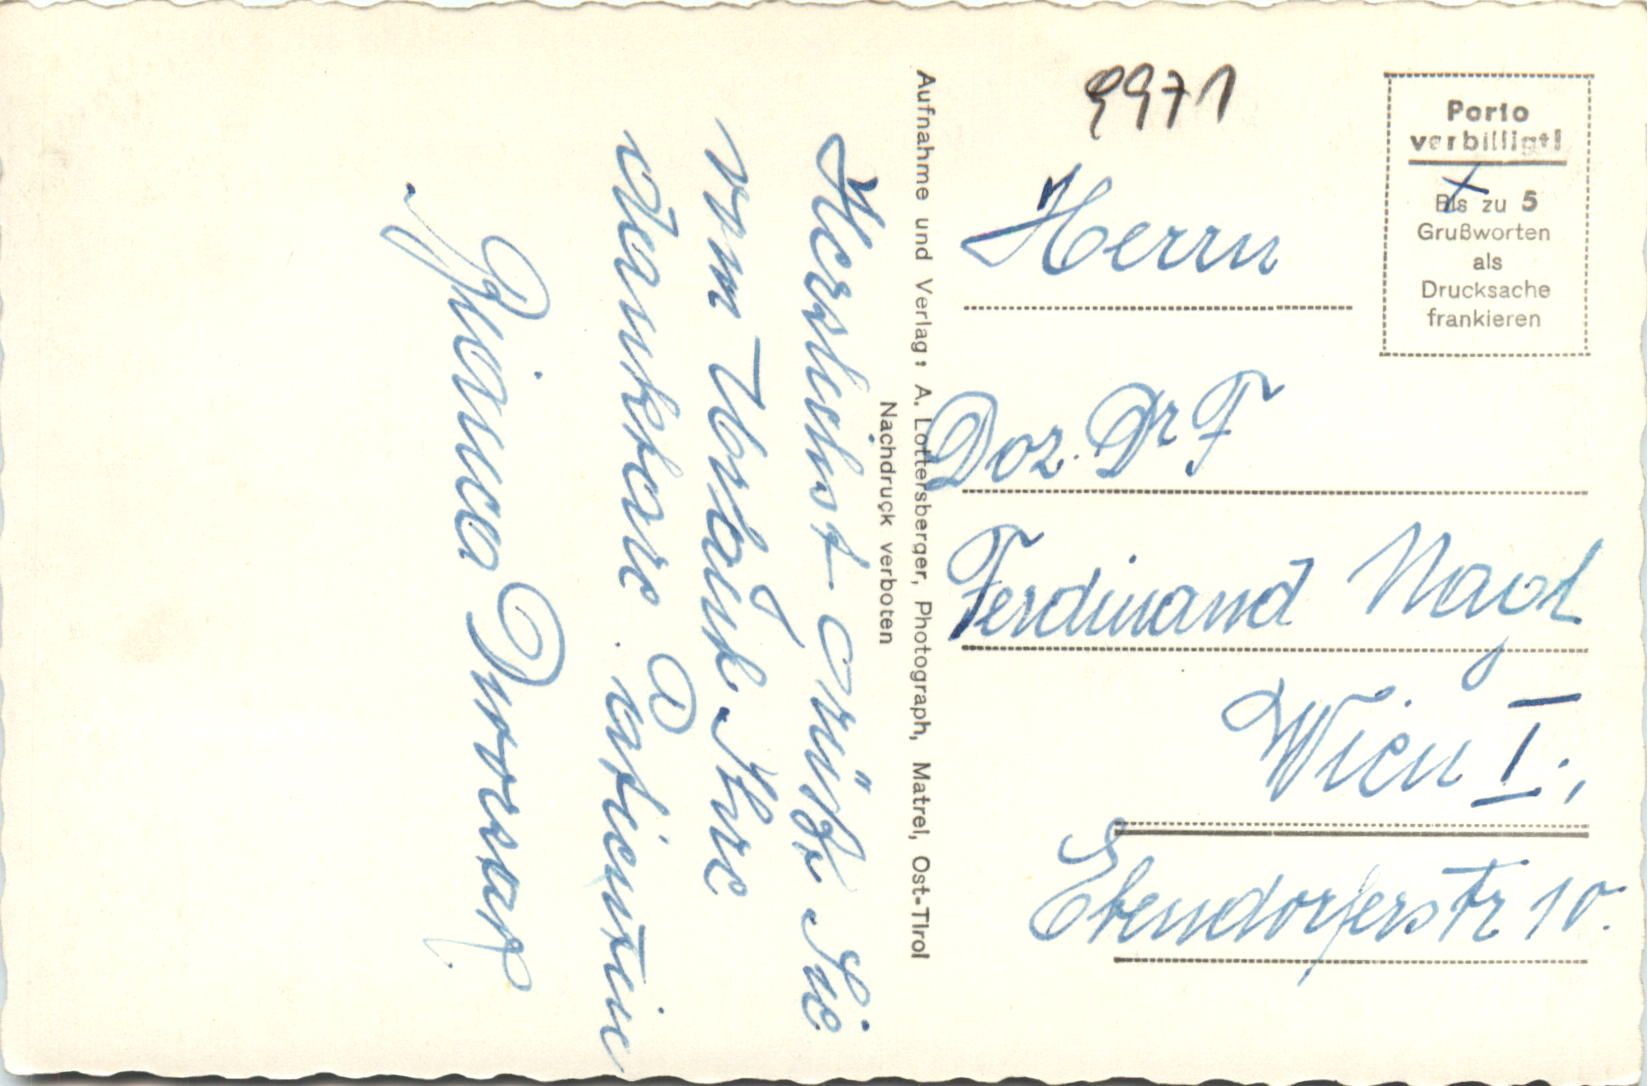 Herzlichst grüßt Sie
vom Urlaub Ihre
dankbare Patientin
Bianca
Aufnahme und Verlag: A. Lottersberger, Photograph, Matrei, Ost-Tirol
Nachdruck verboten
9971
Porto
verbilligt!
Bis zu 5
Grußworten
als
Drucksache
frankieren
Herrn
Doz. Dr F
Ferdinand Nagl
Wien I.,
Ebendorferstr 10.